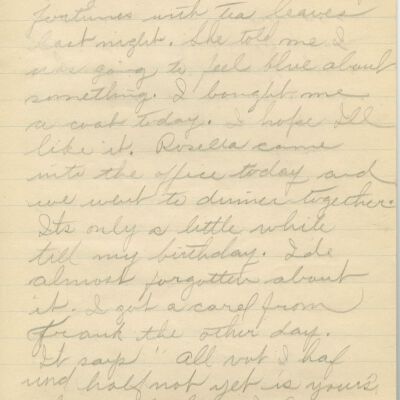 fortunes with tea leaves
last night. She told me I
was going to feel blue about
something. I bought me
a coat today. I hope I'll
like it. Rosella came
into the office today and
we went to dinner together.
Its only a little while
till my birthday. I'de
almost forgotten about
it. I got a card from
Frank the other day.
It says " All vot I haf
und haf not yet is yours